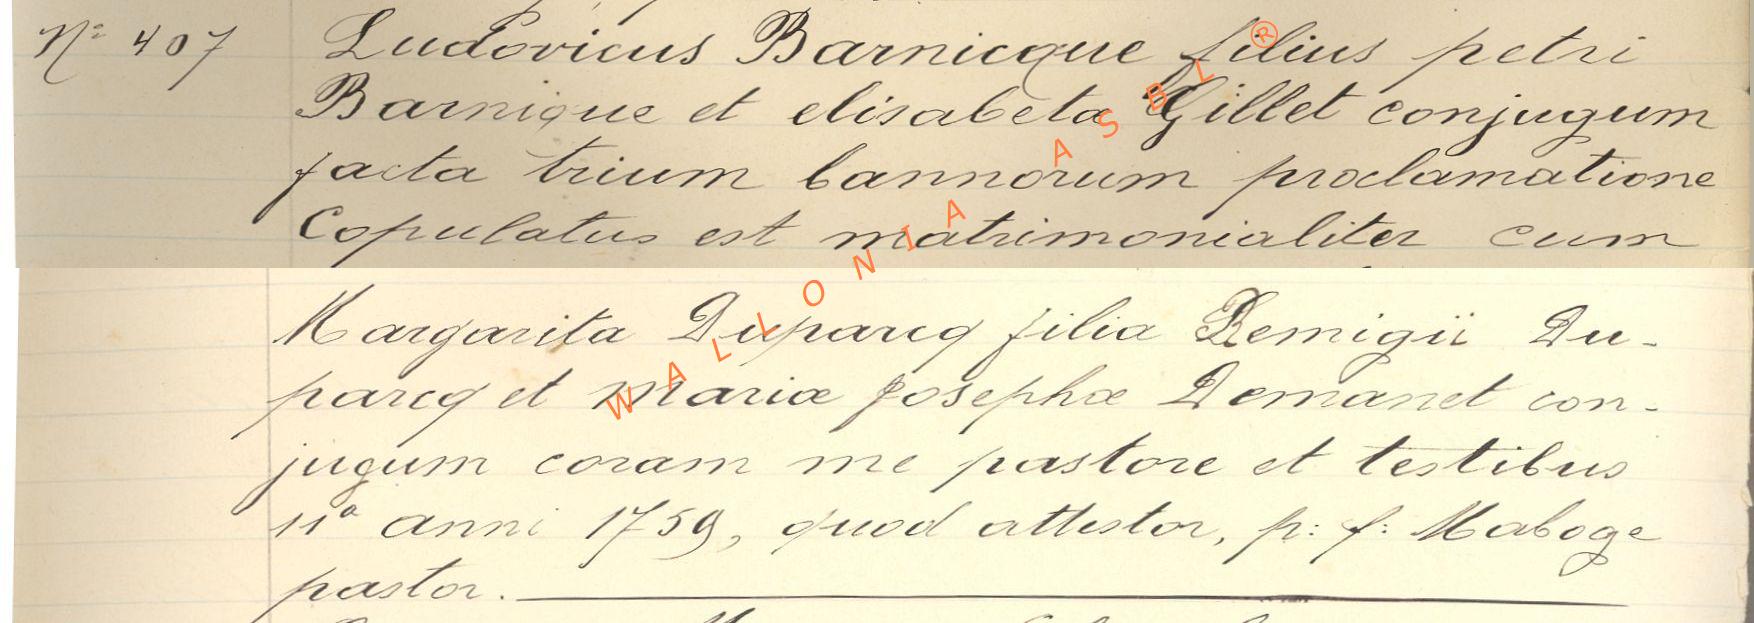 Nº 407 Ludovicus Barnicque filius petri
Barnique et elisabeta Gillet conjugum
facta trium bannorum proclamatione
Copulatus est matrimonialiter cum
Margarita Duparcq filia Remigii Du-
parcq et mariæ Josephæ Demanet con-
jugum coram me pastore et testibus
11ª anni 1759, quod attestor, p: f: Maboge
pastor.
WALLONIA ASBL ®